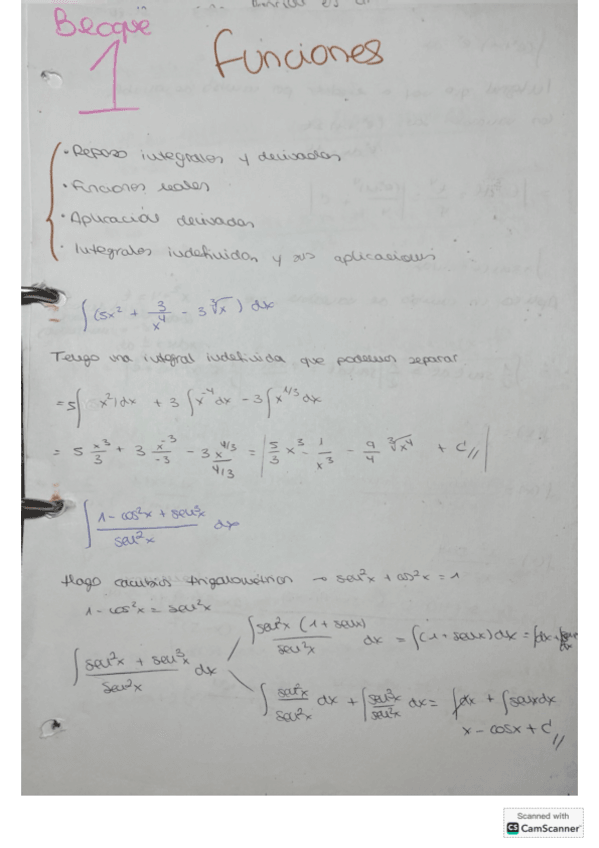 Bloque
1
Funciones
· Repaso integrales y derivadas
· Funciones reales
· Aplicación derivadas
· Integrales indefinidas y sus aplicaciones
∫(5x² + 3/x⁴ - 3∛x) dx
Tengo una integral indefinida que podemos separar
= 5∫x² dx + 3∫x⁻⁴ dx - 3∫x^(1/3) dx
= 5 x³/3 + 3 x⁻³/-3 - 3 x^(4/3)/(4/3) = | 5/3 x³ - 1/x³ - 9/4 ∛x⁴ + C // |
∫ (1 - cos²x + sen³x)/sen²x dx
Hago cambios trigonométricos → sen²x + cos²x = 1
1 - cos²x = sen²x
∫ sen²x (1 + senx)/sen²x dx = ∫(1 + senx) dx = ∫dx + ∫senx dx
∫ (sen²x + sen³x)/sen²x dx
∫ sen²x/sen²x dx + ∫ sen³x/sen²x dx = ∫dx + ∫senx dx
x - cosx + C //
Scanned with
CS CamScanner